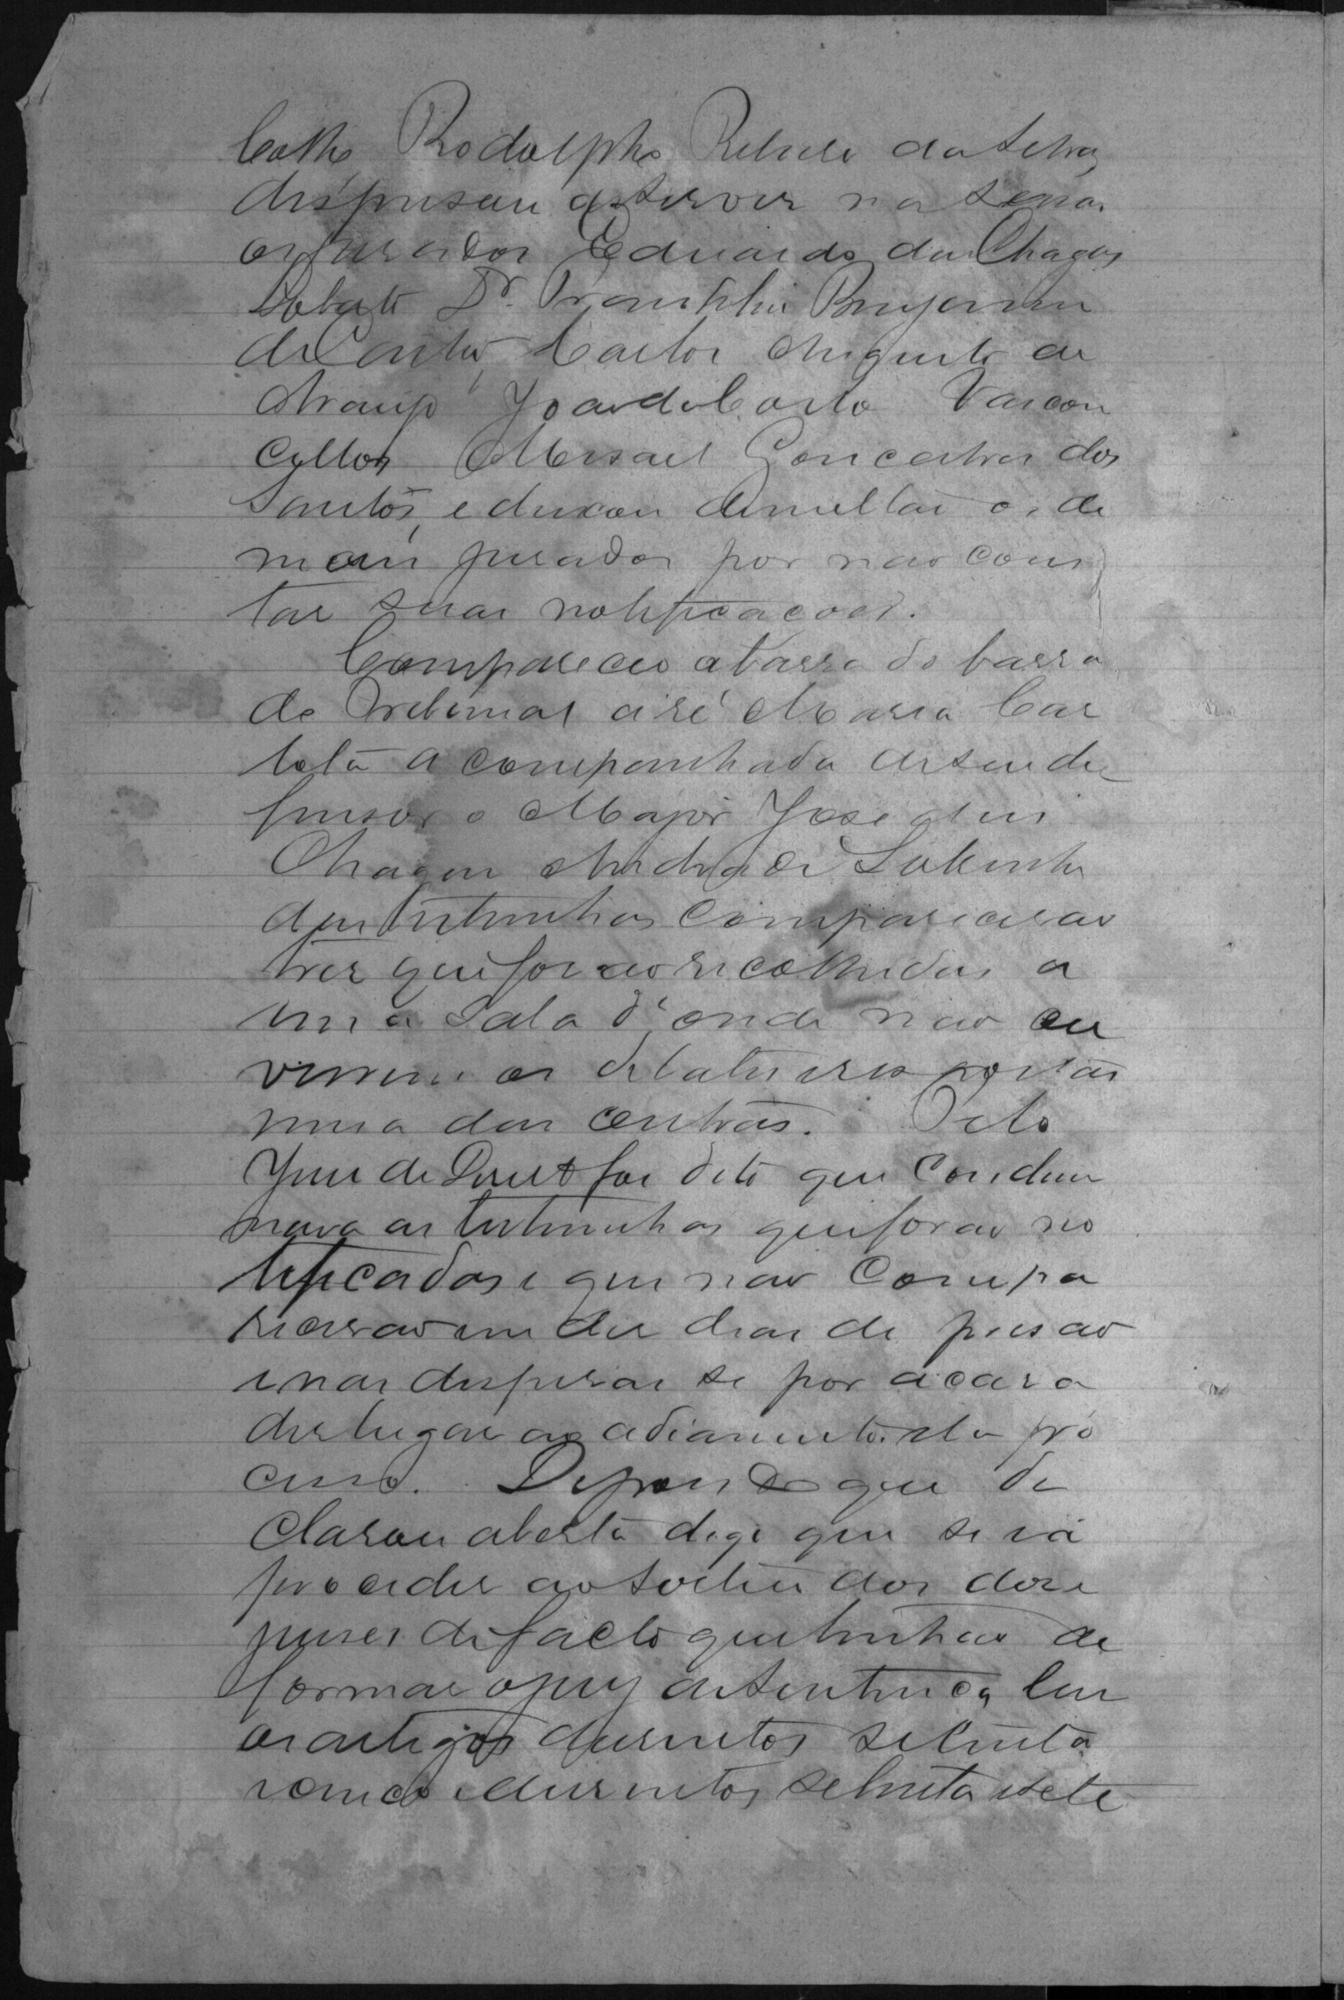 Rodolpho Ribeiro da Silva,
dispensou de servir na sessão
os jurados Eduardo das Chagas
Lobato Dr. Franklin Benjamin
de Castro, Carlos Augusto de
Araujo João da Costa Vascon
cellos Misael Goncalves dos
Santos, e deixou de multar os de
mais jurados por não cons
tar suas notificacoes.
Compareceo a barra do barra
do Tribunal a ré Maria Car
lota acompanhada de seu de
fensor o Major José
Chagas Andrade
das testemunhas comparecerao
tres que forao recolhidas a
uma sala d'onde não ou
vissem os debates
umas das outras. Pelo
Juiz de Direito foi dito que condem
nava as testemunhas que forao no
tificadas e que não compa
recerao em dez dias de prisao
e nas despezas se por acaso
der lugar ao adiamento do pro
cesso. Depois do que de
clarou aberta dige que se ia
proceder ao sorteio dos doze
juizes de facto que tinhao de
formar o jury de sentença, leu
os artigos dusentos setenta
e cinco e dusentos setenta e sete